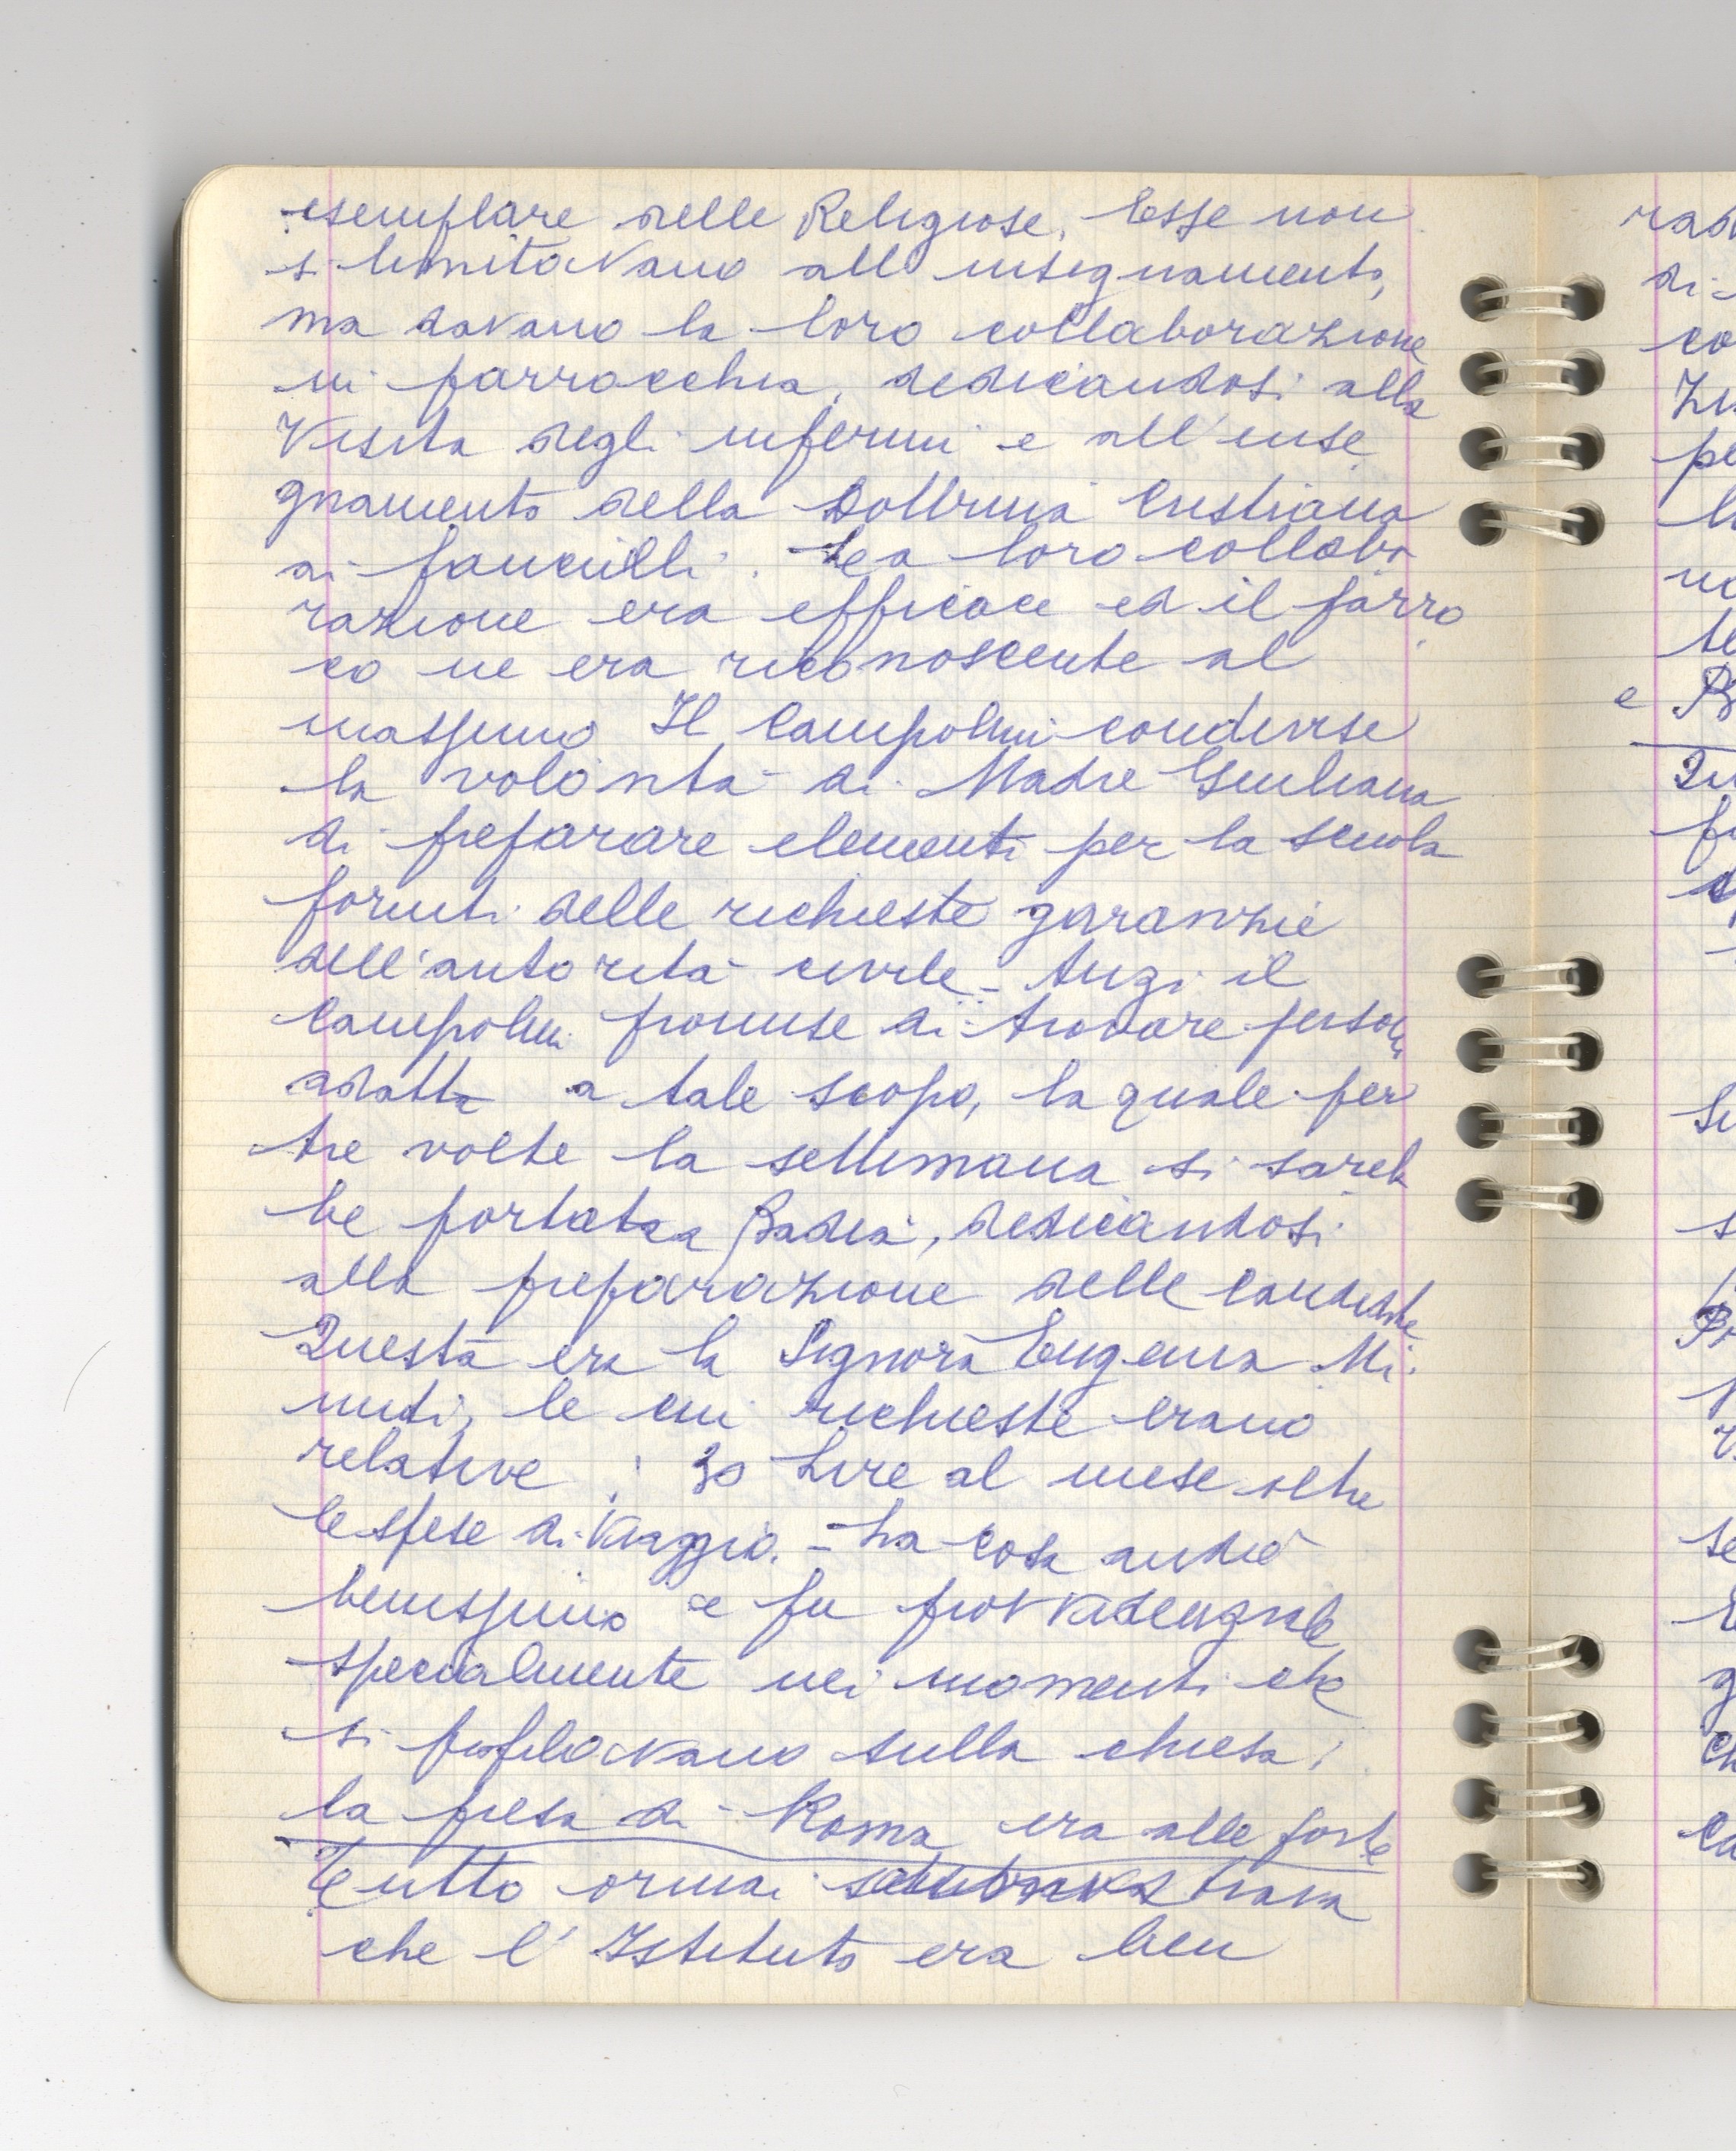 esemplare delle Religiose. Esse non
si limitavano all insegnamento,
ma davano la loro collaborazione
in parrocchia, dedicandosi alla
Visita degli infermi e all'inse
gnamento della Dottrina Cristiana
ai fanciulli. La loro collabo
razione era efficace ed il parro
co ne era riconoscente al
massimo Il Campolmi condivise
la volontà di Madre Giuliana
di preparare elementi per la scuola
forniti delle richieste garanzie
dell'autorità civile - Anzi il
Campolmi promise di trovare persona
adatta a tale scopo, la quale per
tre volte la settimana si sareb
be portata a Badia, dedicandosi
alla preparazione delle candidate
Questa era la Signora Eugenia Mi
nuti, le cui richieste erano
relative: 30 Lire al mese oltre
le spese di Viaggio. - La cosa andò
benissimo e fu provvidenziale
specialmente nei momenti che
si profilavano sulla chiesa;
la presa di Roma era alle porte
Tutto ormai
che l'Istituto era ben
rad
di
co
pe
no
te
e
Qu
fu
s
se